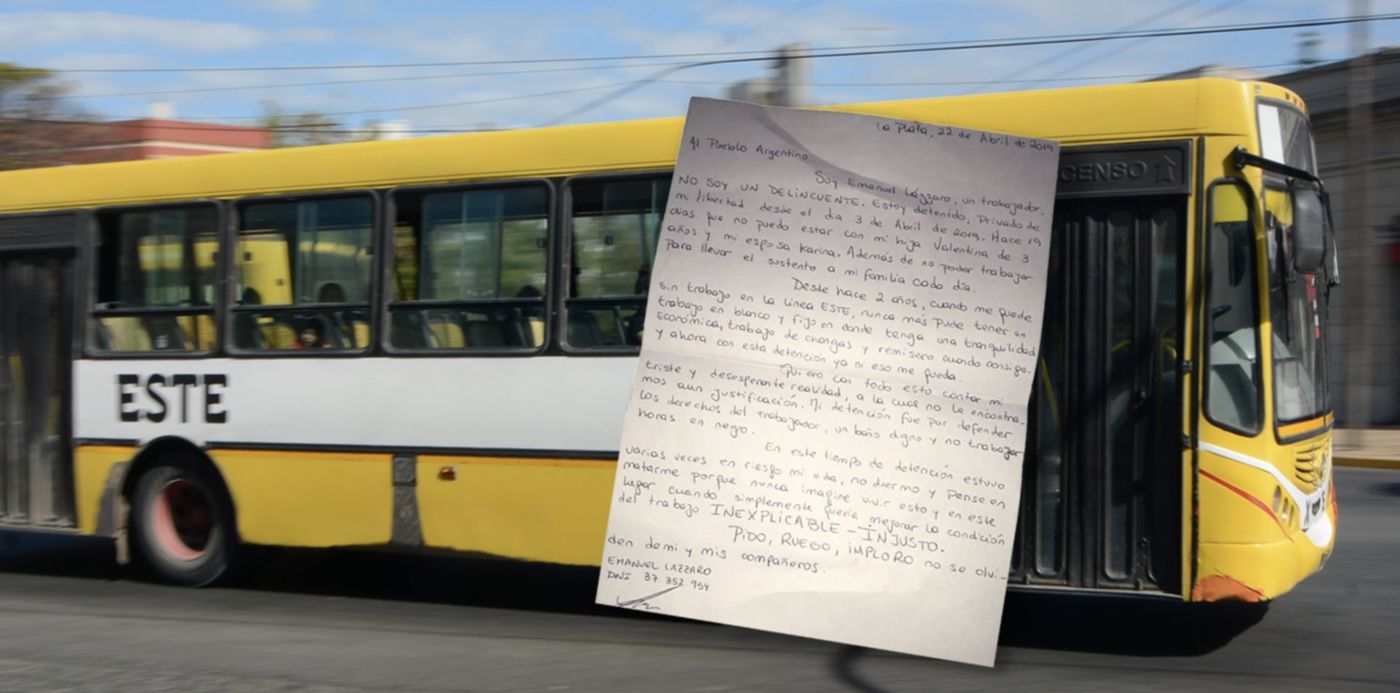 ESTE
ASCENSO 1
La Plata, 22 de Abril de 2019
Al Pueblo Argentino
Soy Emanuel Lázzaro, un trabajador.
NO SOY UN DELINCUENTE. Estoy detenido, Privado de
mi libertad desde el dia 3 de Abril de 2019. Hace 19
dias que no puedo estar con mi hija Valentina de 3
años y mi esposa Karina. Además de no poder trabajar
Para llevar el sustento a mi familia cada dia.
Desde hace 2 años, cuando me quede
sin trabajo en la linea ESTE, nunca más pude tener un
trabajo en blanco y fijo en donde tenga una tranquilidad
Económica, trabajo de changas y remisero cuando consigo.
y ahora con esta detención ya ni eso me queda.
Quiero con todo esto contar mi
triste y desesperante realidad, a la cual no le encontra-
mos aun justificación. Mi detención fue por defender
los derechos del trabajador, un baño digno y no trabajar
horas en negro.
En este tiempo de detención estuvo
varias veces en riesgo mi vida, no duermo y Pense en
matarme porque nunca imagine vivir esto y en este
lugar cuando simplemente queria mejorar la condición
del trabajo INEXPLICABLE - INJUSTO.
PIDO, RUEGO, IMPLORO no se olvi-
den de mi y mis compañeros.
EMANUEL LAZZARO
DNI 37 352 954